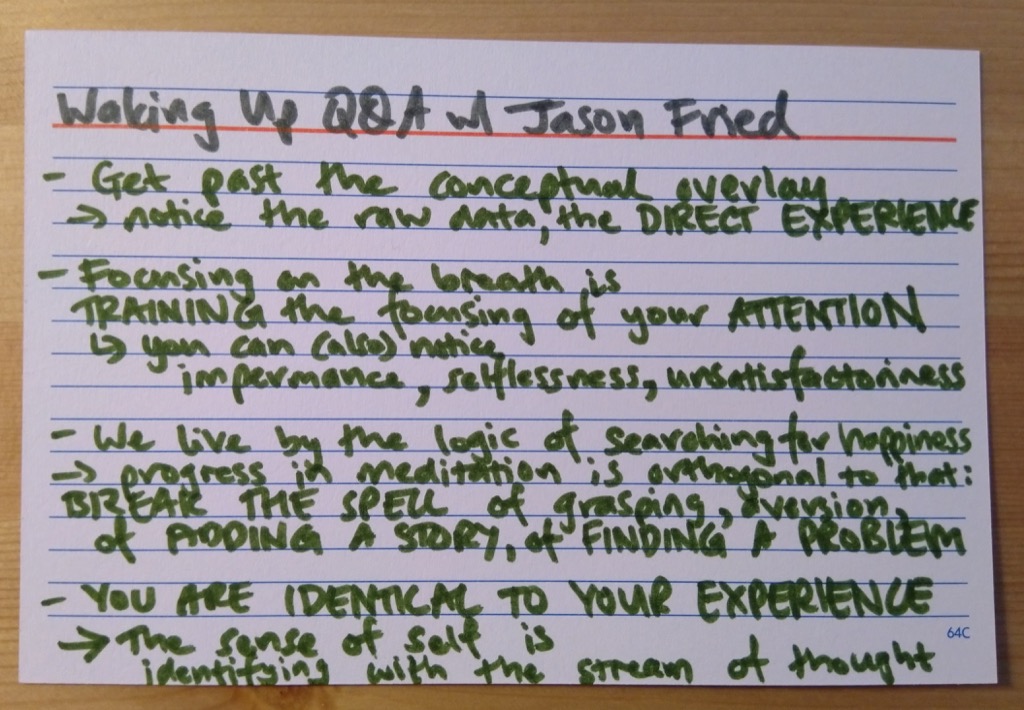 Waking Up Q&A w/ Jason Fried
- Get past the conceptual overlay
→ notice the raw data, the DIRECT EXPERIENCE
- Focusing on the breath is
TRAINING the focusing of your ATTENTION
↳ you can (also) notice
impermance, selflessness, unsatisfactoriness
- We live by the logic of searching for happiness
→ progress in meditation is orthogonal to that:
BREAK THE SPELL of grasping, aversion,
of ADDING A STORY, of FINDING A PROBLEM
- YOU ARE IDENTICAL TO YOUR EXPERIENCE
64C
→ The sense of self is
identifying with the stream of thought